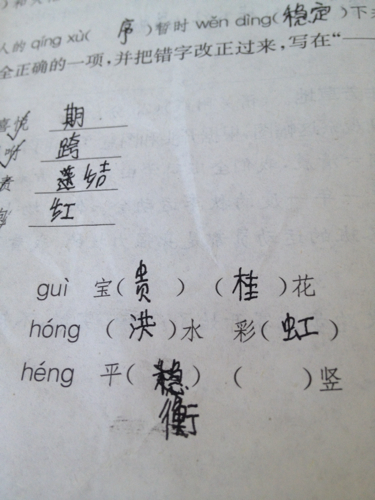 人的 qíng xù( 序 )暂时 wěn dìng(稳定)下
全正确的一项,并把错字改正过来,写在"
期
跨
红
guì 宝(贵) (桂)花
hóng (洪)水 彩(虹)
héng 平( ) ( )竖
衡